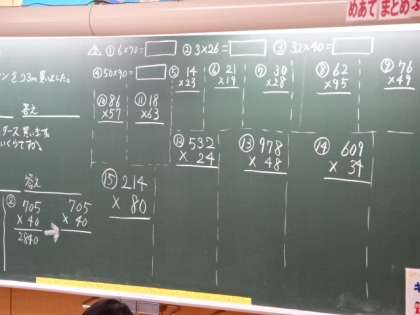 めあて まとめ
① 6×70=
② 3×26=
③ 32×40=
ンを23m買いました。
④ 50×90=
⑤ 14
×23
⑥ 21
×19
⑦ 30
×28
⑧ 62
×95
⑨ 76
×49
答え
⑩ 86
×57
⑪ 18
×63
⑫ 532
× 24
⑬ 978
× 48
⑭ 609
× 34
答え
⑮ 214
× 80
② 705
× 40
2840
705
× 40